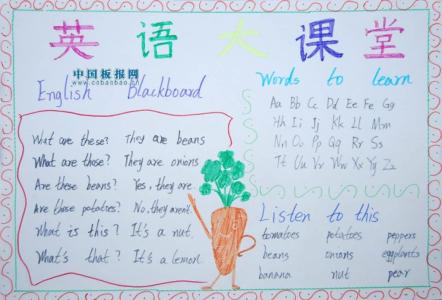 英语大课堂
中国板报网
www.cobanbao.com
English Blackboard
What are these? They are beans
What are these? They are onions
Are these beans? Yes, they are.
Are these potatoes? No, they aren't.
What is this? It's a nut.
What's that? It's a lemon.
Words to learn
Aa Bb Cc Dd Ee Ff Gg
Hh Ii Jj Kk Ll Mm
Nn Oo Pp Qq Rr Ss
Tt Uu Vv Ww Xx Yy Zz
Listen to this
tomatoes potatoes peppers
beans onions eggplants
banana nut pear